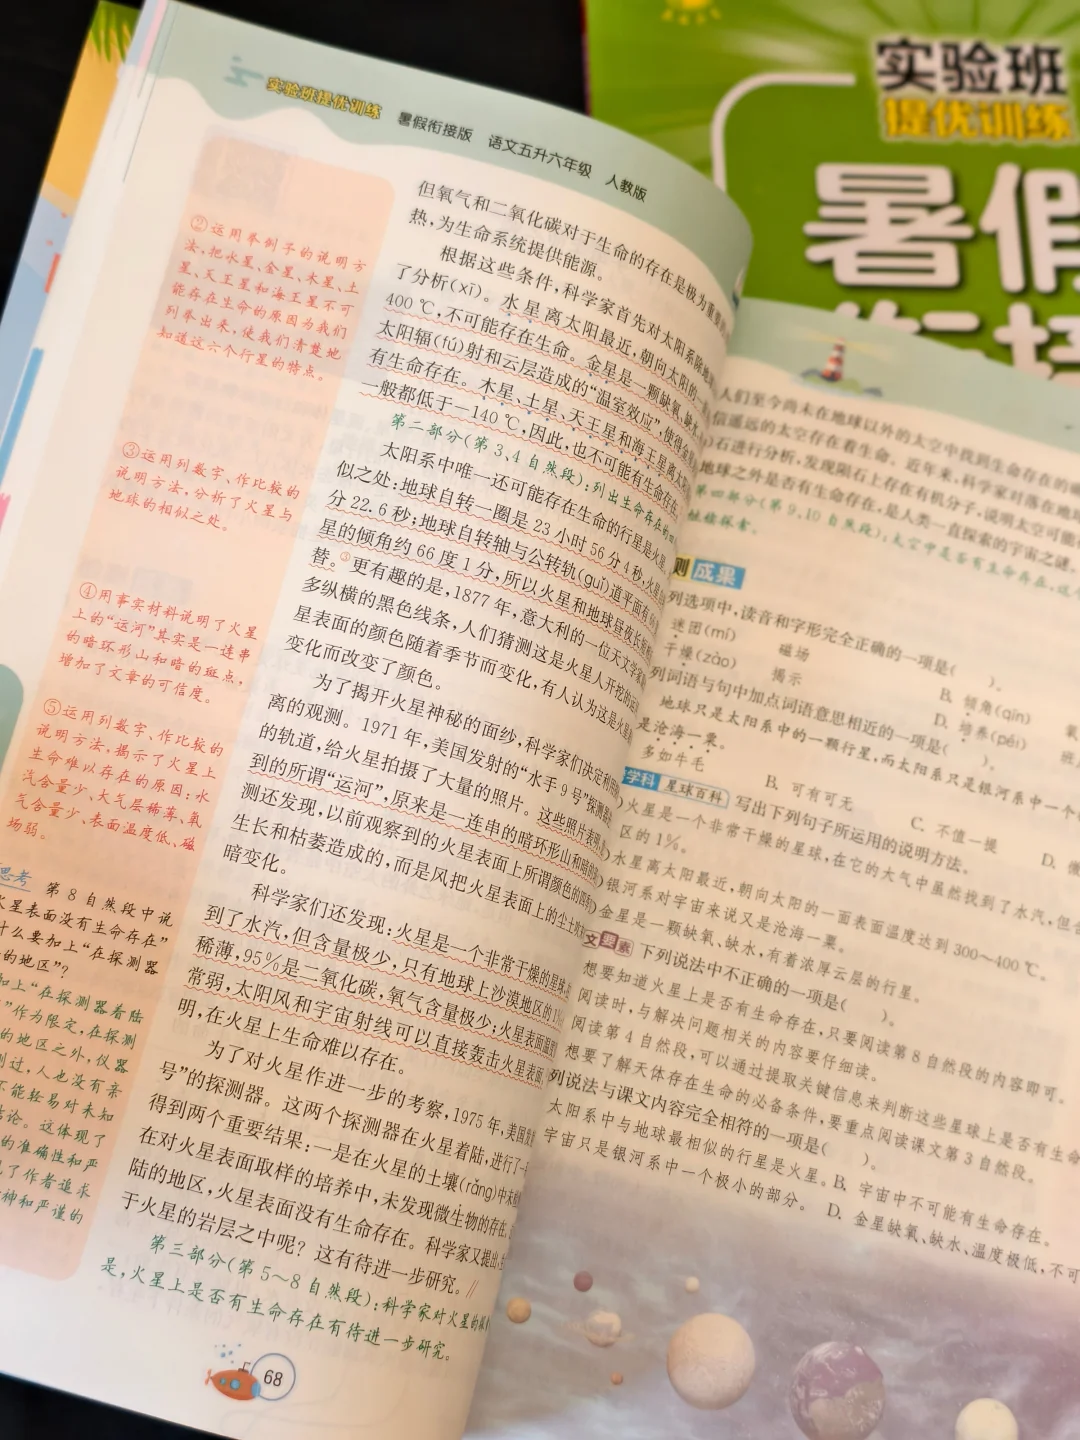 实验班提优训练 暑假衔接版 语文五升六年级 人教版
②运用举例子的说明方
法,把水星、金星、木星、土
星、天王星和海王星不可
能存在生命的原因为我们
列举出来,使我们清楚地
知道这六个行星的特点。
③运用列数字、作比较的
说明方法,分析了火星与
地球的相似之处。
④用事实材料说明了火星
上的“运河”其实是一连串
的暗环形山和暗的斑点,
增加了文章的可信度。
⑤运用列数字、作比较的
说明方法,揭示了火星上
生命难以存在的原因:水
汽含量少、大气层稀薄、氧
气含量少、表面温度低、磁
场弱。
思考 第8自然段中说
火星表面没有生命存在”
什么要加上“在探测器
的地区”?
加上“在探测器着陆
”作为限定,在探测
的地区之外,仪器
测过,人也没有亲
不能轻易对未知
结论。这体现了
的准确性和严
了作者追求
神和严谨的
但氧气和二氧化碳对于生命的存在是极为重要的
热,为生命系统提供能源。
根据这些条件,科学家首先对太阳系
了分析(xī)。水星离太阳最近,朝向太阳的一
400 ℃,不可能存在生命。金星是一颗缺氧、缺水
太阳辐(fú)射和云层造成的“温室效应”,使得金星
有生命存在。木星、土星、天王星和海王星离太
一般都低于-140 ℃,因此,也不可能有生命存在
第二部分(第3、4自然段):列出生命存在的
太阳系中唯一还可能存在生命的行星是火星
似之处:地球自转一圈是23小时56分4秒,火星
分22.6秒;地球自转轴与公转轨(guǐ)道平面有
星的倾角约66度1分,所以火星和地球昼夜长
替。③更有趣的是,1877年,意大利的一位天文学家
多纵横的黑色线条,人们猜测这是火星人开挖的运
星表面的颜色随着季节而变化,有人认为这是火星
变化而改变了颜色。
为了揭开火星神秘的面纱,科学家们决定利用
离的观测。1971年,美国发射的“水手9号”探测器
的轨道,给火星拍摄了大量的照片。这些照片表明
到的所谓“运河”,原来是一连串的暗环形山和暗的
测还发现,以前观察到的火星表面上所谓颜色的四季
生长和枯萎造成的,而是风把火星表面上的尘土吹
暗变化。
科学家们还发现:火星是一个非常干燥的星球
到了水汽,但含量极少,只有地球上沙漠地区的1%
稀薄,95%是二氧化碳,氧气含量极少;火星表面温度
常弱,太阳风和宇宙射线可以直接轰击火星表面
明,在火星上生命难以存在。
为了对火星作进一步的考察,1975年,美国
号”的探测器。这两个探测器在火星着陆,进行了一
得到两个重要结果:一是在火星的土壤(rǎng)中未
在对火星表面取样的培养中,未发现微生物的存在
陆的地区,火星表面没有生命存在。科学家又提出
于火星的岩层之中呢?这有待进一步研究。//
第三部分(第5~8自然段):科学家对火星的
是,火星上是否有生命存在有待进一步研究。
68
实验班
提优训练
暑假
人们至今尚未在地球以外的太空中找到生命存在的
信遥远的太空存在着生命。近年来,科学家对落在地球
石进行分析,发现陨石上存在有机分子,说明太空可能
地球之外是否有生命存在,是人类一直探索的宇宙之谜。
第四部分(第9、10自然段):太空中是否有生命存在,
继续探索。
测 成果
列选项中,读音和字形完全正确的一项是( )。
迷团(mí) 磁场
B. 倾角(qīn)
干燥(zào) 揭示
D. 培养(péi)
列词语与句中加点词语意思相近的一项是( )。
地球只是太阳系中的一颗行星,而太阳系只是银河系中一个
是沧海一粟。
多如牛毛 B. 可有可无 C. 不值一提 D.
学科 星球百科 写出下列句子所运用的说明方法。
火星是一个非常干燥的星球,在它的大气中虽然找到了水汽,但含
区的1%。
水星离太阳最近,朝向太阳的一面表面温度达到300~400 ℃。
银河系对宇宙来说又是沧海一粟。
金星是一颗缺氧、缺水,有着浓厚云层的行星。
文要素 下列说法中不正确的一项是( )。
想要知道火星上是否有生命存在,只要阅读第8自然段的内容即可。
阅读时,与解决问题相关的内容要仔细读。
阅读第4自然段,可以通过提取关键信息来判断这些星球上是否有生命
想要了解天体存在生命的必备条件,要重点阅读课文第3自然段。
列说法与课文内容完全相符的一项是( )。
太阳系中与地球最相似的行星是火星。 B. 宇宙中不可能有生命存在。
宇宙只是银河系中一个极小的部分。 D. 金星缺氧、缺水、温度极低,不可